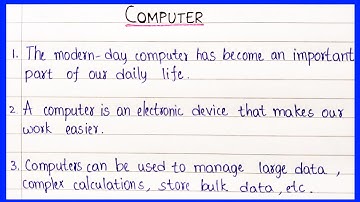 COMPUTER
1. The modern-day computer has become an important
part of our daily life.
2 A computer is an electronic device that makes our
work easier.
3. Computers can be used to manage large data,
complex calculations, store bulk data, etc.